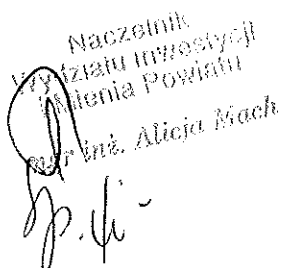 Naczelnik
Wydziału Inwestycji
i Mienia Powiatu
mgr inż. Alicja Mach